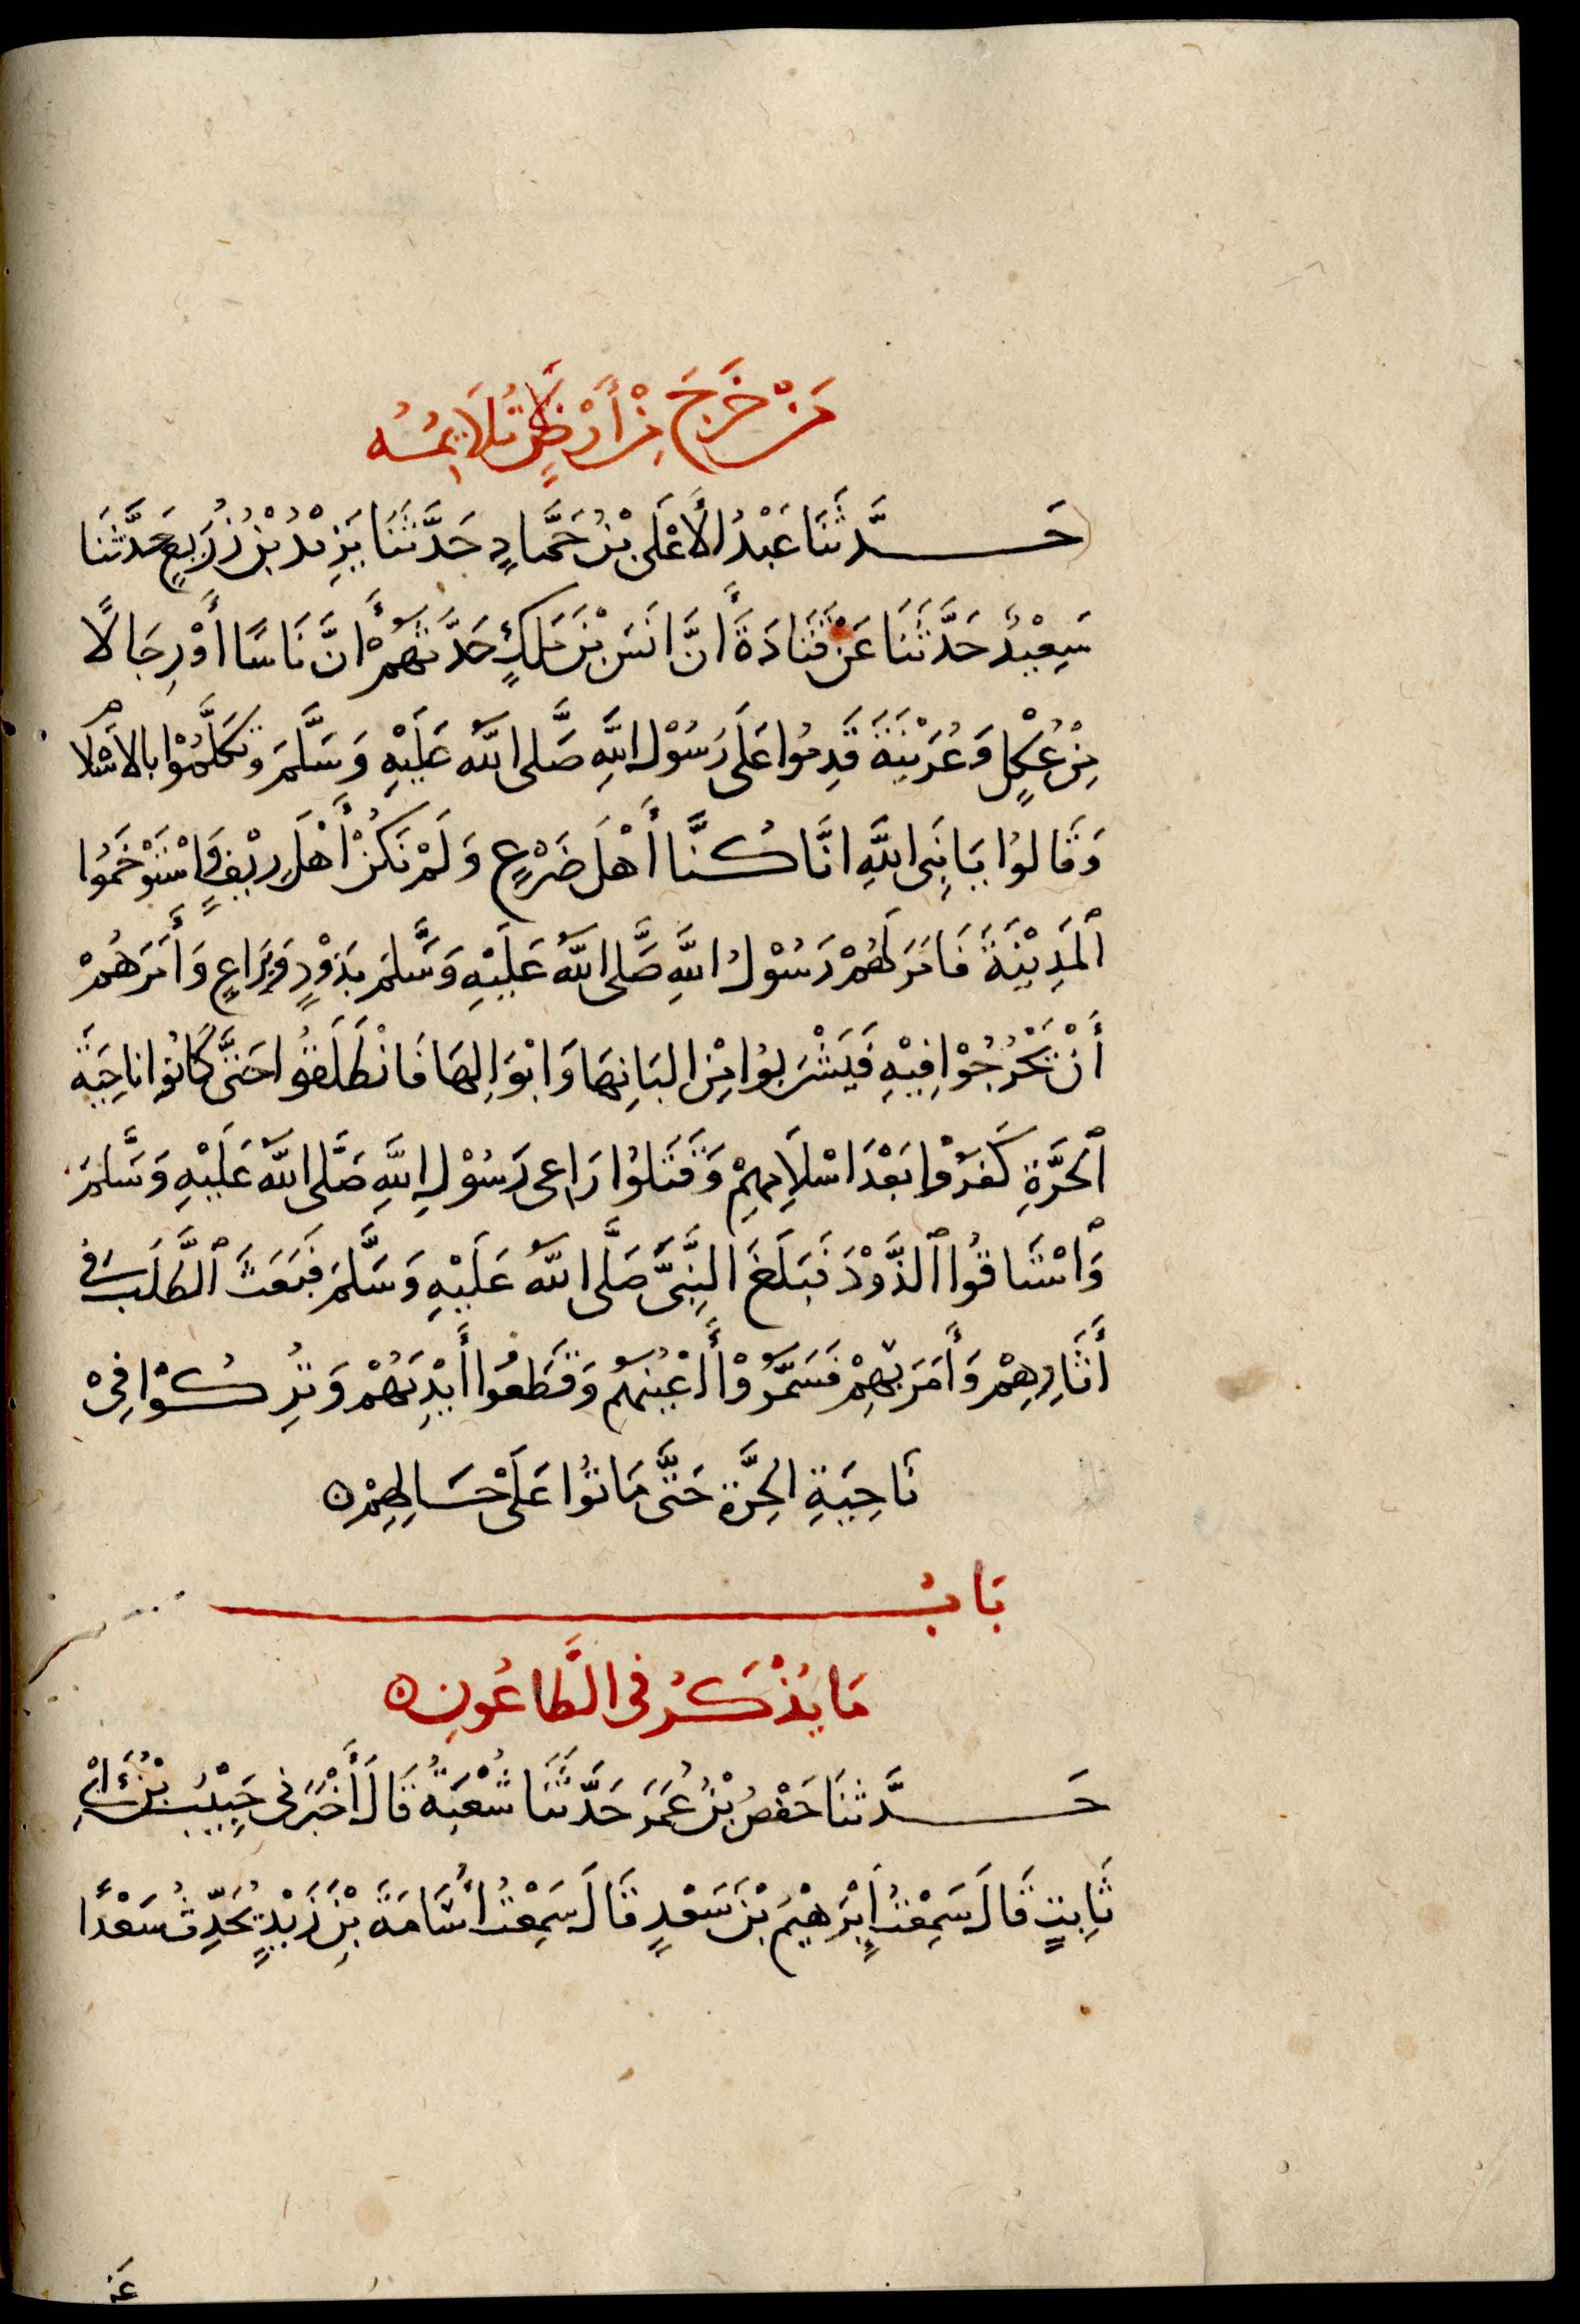 مَنْ خَرَجَ مِنْ أَرْضٍ لَا تُلَايِمُهُ
حَدَّثَنَا عَبْدُ الأَعْلَى بْنُ حَمَّادٍ حَدَّثَنَا يَزِيْدُ بْنُ زُرَيعٍ حَدَّثَنَا
سَعِيْدٌ حَدَّثَنَا عَنْ قَتَادَةَ أَنَّ انَسَ بْنَ مَلكٍ حَدَّثَهُمْ أَنَّ نَاسًا أَوْ رِجَالًا
مِنْ عُكْلٍ وَعُرَيْنَةَ قَدِمُوا عَلَى رَسُوْل اللَّهِ صَلَّى اللَّهُ عَلَيْهِ وَسَلَّمَ وَتَكَلَّمُوْا بالاسْلام
وَقَالوُا يَا نَبِى اللَّهِ انَّا كُنَّا أَهْلَ ضَرْعٍ وَلَمْ نَكُنْ أَهْلَ رِيْفٍ وَاسْتَوْخَمُوا
ٱلمَدِيْنَةَ فَامَرَ لَهُمْ رَسُوْلُ اللَّهِ صَلَّى اللَّهُ عَلَيْهِ وَسَّلمَ بذَوْدٍ وَبِرَاعٍ وَأَمَرَهُمْ
أَنْ يَخْرُجُوْا فِيْهِ فَيَشْرَبوُا مِنْ البَانِهَا وَابْوَالِهَا فَانْطَلَقُوا حَتَّى كَانُوا نَاحِيَةَ
ٱلحَرَّةِ كَفَرُوْا بَعْدَ اسْلَامِهِمْ وَقَتَلوُا رَاعِى رَسُوْلِ اللَّهِ صَلَّى اللَّهُ عَلَيْهِ وَسَّلمَ
وَٱسْتَاقُوا ٱلذَّوْدَ فَبَلَغَ النَّبِىَّ صَلَّى اللَّهُ عَلَيْهِ وَسَّلمَ فَبَعَثَ ٱلطَّلَبَ فى
أَثَارِهِمْ وَأَمَرَ بِهِمْ فَسَمَّرُوْا أَعْيُنَهُم وَقَطَعُوا أَيْدِيَهُمْ وَتُرِكُوْا فِىْ
نَاحِيَةِ الحَرَّةِ حَتَّى مَاتُوْا عَلَى حَالِهِمْ ه
بَابُ
مَا يُذْكَرُ فى الطَّاعُونِ ه
حَدَّثنَا حَفْصُ بْنُ عُمَرَ حَدَّثَنَا شُعْبَةُ قَالَ أَخْبَرَنى حَبِيْبُ بْنُ أَبِى
ثَابِتٍ قَالَ سَمِعْتُ إِبْرَهِيْمَ بْنَ سَعْدٍ قَالَ سَمِعْتُ أُسَامَةَ بْنَ زَيْدٍ يُحَدِّثُ سَعْدًا
عَنِ